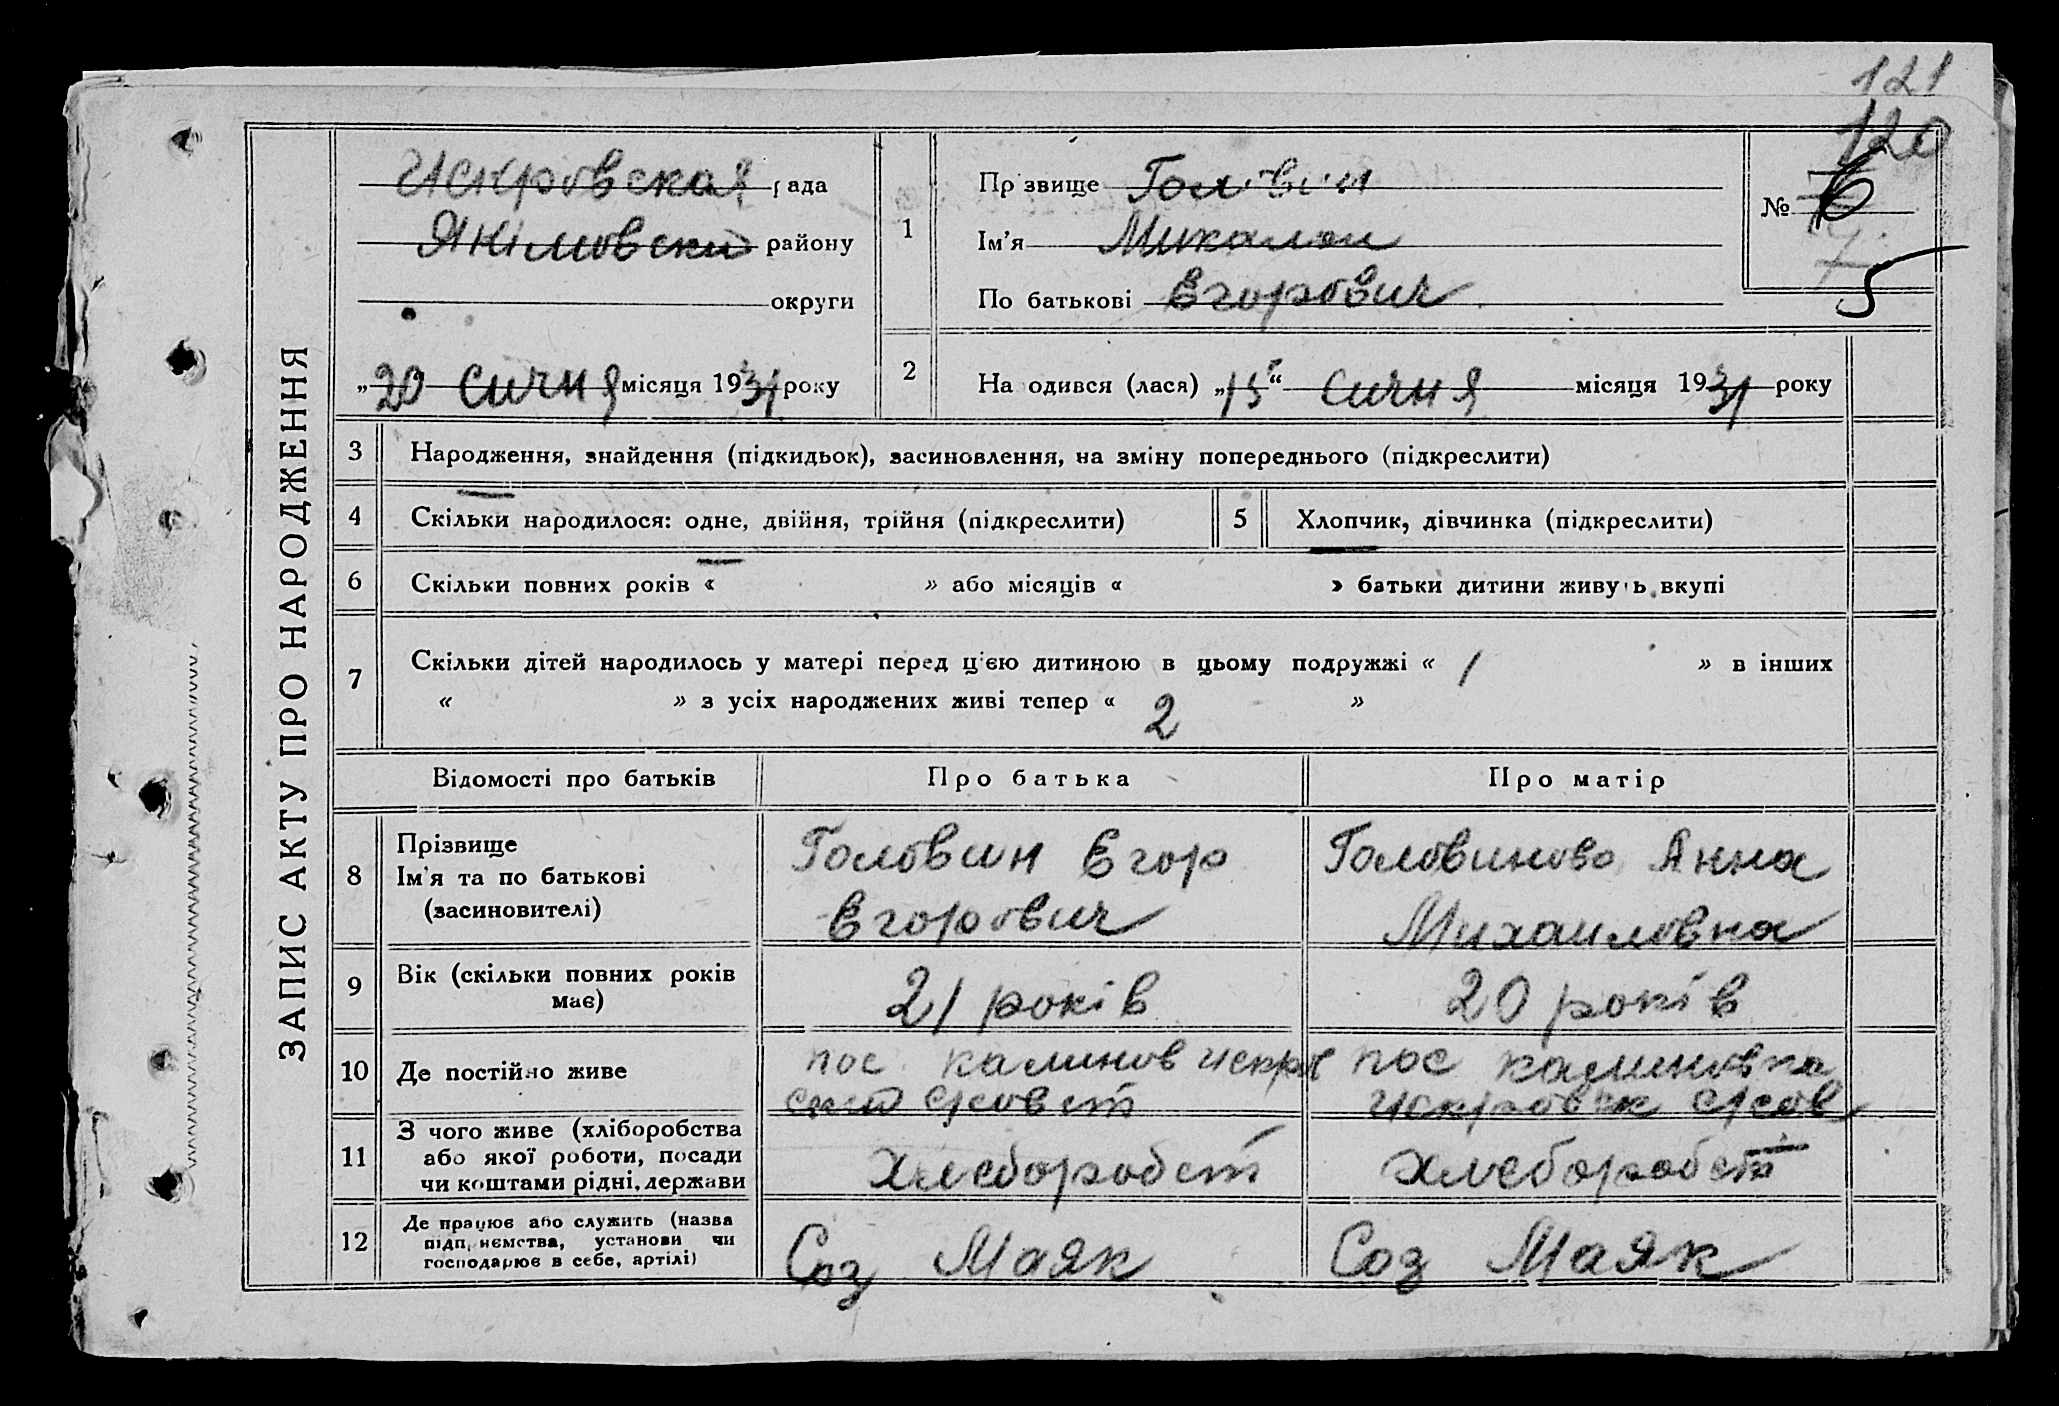 121
120
ЗАПИС АКТУ ПРО НАРОДЖЕННЯ
Искровская рада
Якімовский району
округи
„20 сичня місяця 1931 року
1
Прізвище Головин
Ім’я Микалои
По батькові Егорович
№ 6
5
2
Народився (лася) „15“ сичня місяця 1931 року
3 Народження, знайдення (підкидьок), засиновлення, на зміну попереднього (підкреслити)
4 Скільки народилося: одне, двійня, трійня (підкреслити)
5 Хлопчик, дівчинка (підкреслити)
6 Скільки повних років « » або місяців « » батьки дитини живуть вкупі
7 Скільки дітей народилось у матері перед цією дитиною в цьому подружжі « 1 » в інших
« » з усіх народжених живі тепер « 2 »
Відомості про батьків
Про батька
Про матір
8
Прізвище
Ім’я та по батькові
(засиновителі)
Головин Егор
Егорович
Головиново Анна
Михаиловна
9
Вік (скільки повних років
має)
21 років
20 років
10 Де постійно живе
пос. калинов искров
ский с/совет
пос калиновка
искровск с/сов
11
З чого живе (хліборобства
або якої роботи, посади
чи коштами рідні, держави
Хлеборобст
Хлеборобст
12
Де працює або служить (назва
підприємства, установи чи
господарює в себе, артілі)
Соз Маяк
Соз Маяк